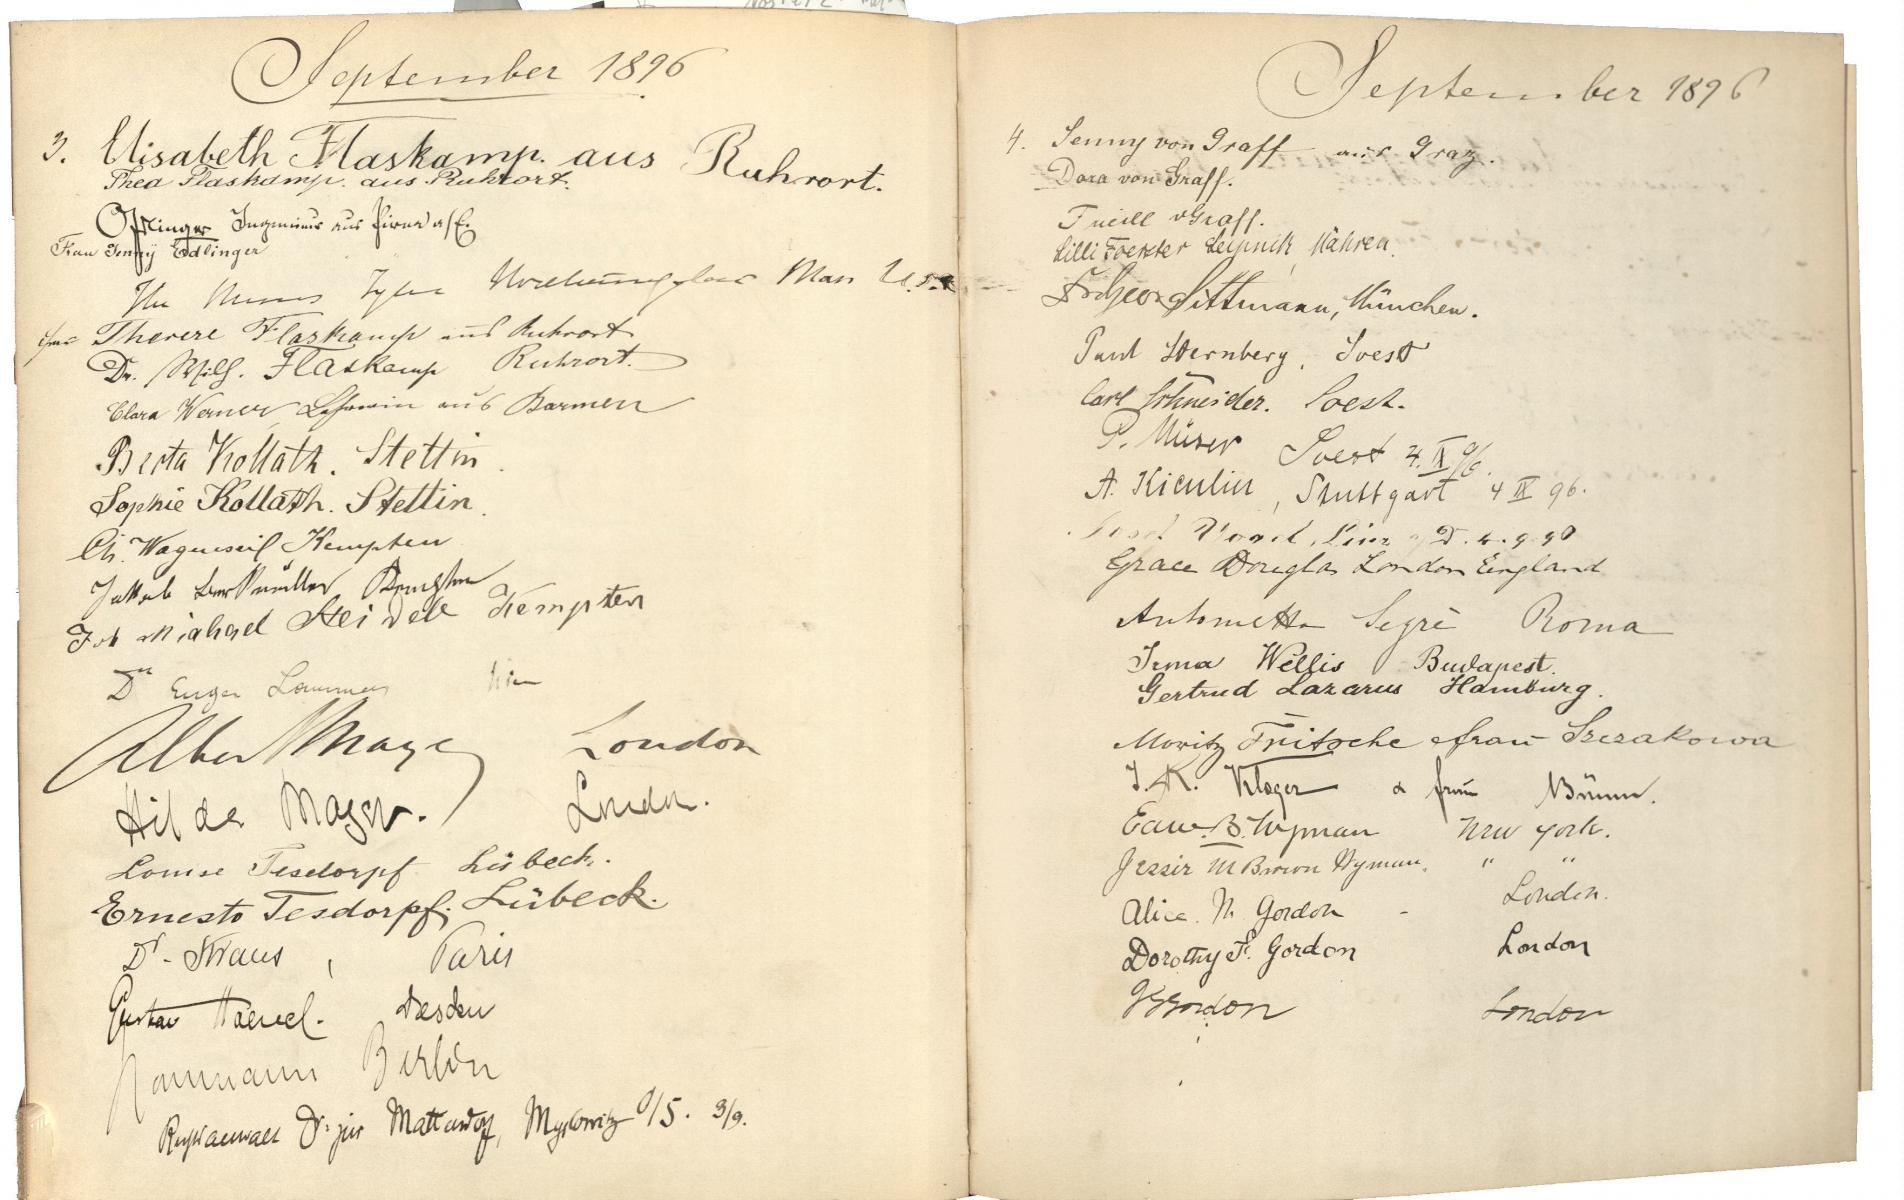 September 1896
3. Elisabeth Flaskamp. aus Ruhrort.
Thea Flaskamp. aus Ruhrort.
Ingenieur aus Pirna a/E.
Frau Jenny Edlinger
Therese Flaskamp aus Ruhrort
Dr. Wilh. Flaskamp Ruhrort.
Clara Werner, Lehrerin aus Barmen
Berta Kollath. Stettin.
Sophie Kollath. Stettin.
Ch. Wagenseil Kempten
Jakob Kempten
Joh Michael Steidele Kempten
Dr Eugen
Albert Mayer London
Hilda Mayer. London.
Louise Tesdorpf Lübeck.
Ernesto Tesdorpf. Lübeck.
Dr. Straus, Paris
Gustav Dresden
Berlin
Rechtsanwalt Dr. jur Mattersdorf, Myslowitz O/S. 3/9.
September 1896
4. Jenny von Graff aus Graz.
Dora von Graff.
vGraff.
Lilli Foerster Leipnik, Mähren.
Dittmann, München.
Paul Sternberg, Soest
Carl Schneider. Soest.
P. Müser Soest 4. IX 96.
A. Kiculin, Stuttgart 4 IX 96.
Grace Douglas London England
Antonietta Segrè Roma
Irma Wellis Budapest.
Gertrud Lazarus Hamburg.
Moritz Fritsche & frau Szczakowa
J. K. Kloger & frau Brünn.
Edw. B. Wyman New York.
Jessie M Brown Wyman. " "
Alice. M. Gordon - London.
Dorothy F. Gordon London
Gordon London